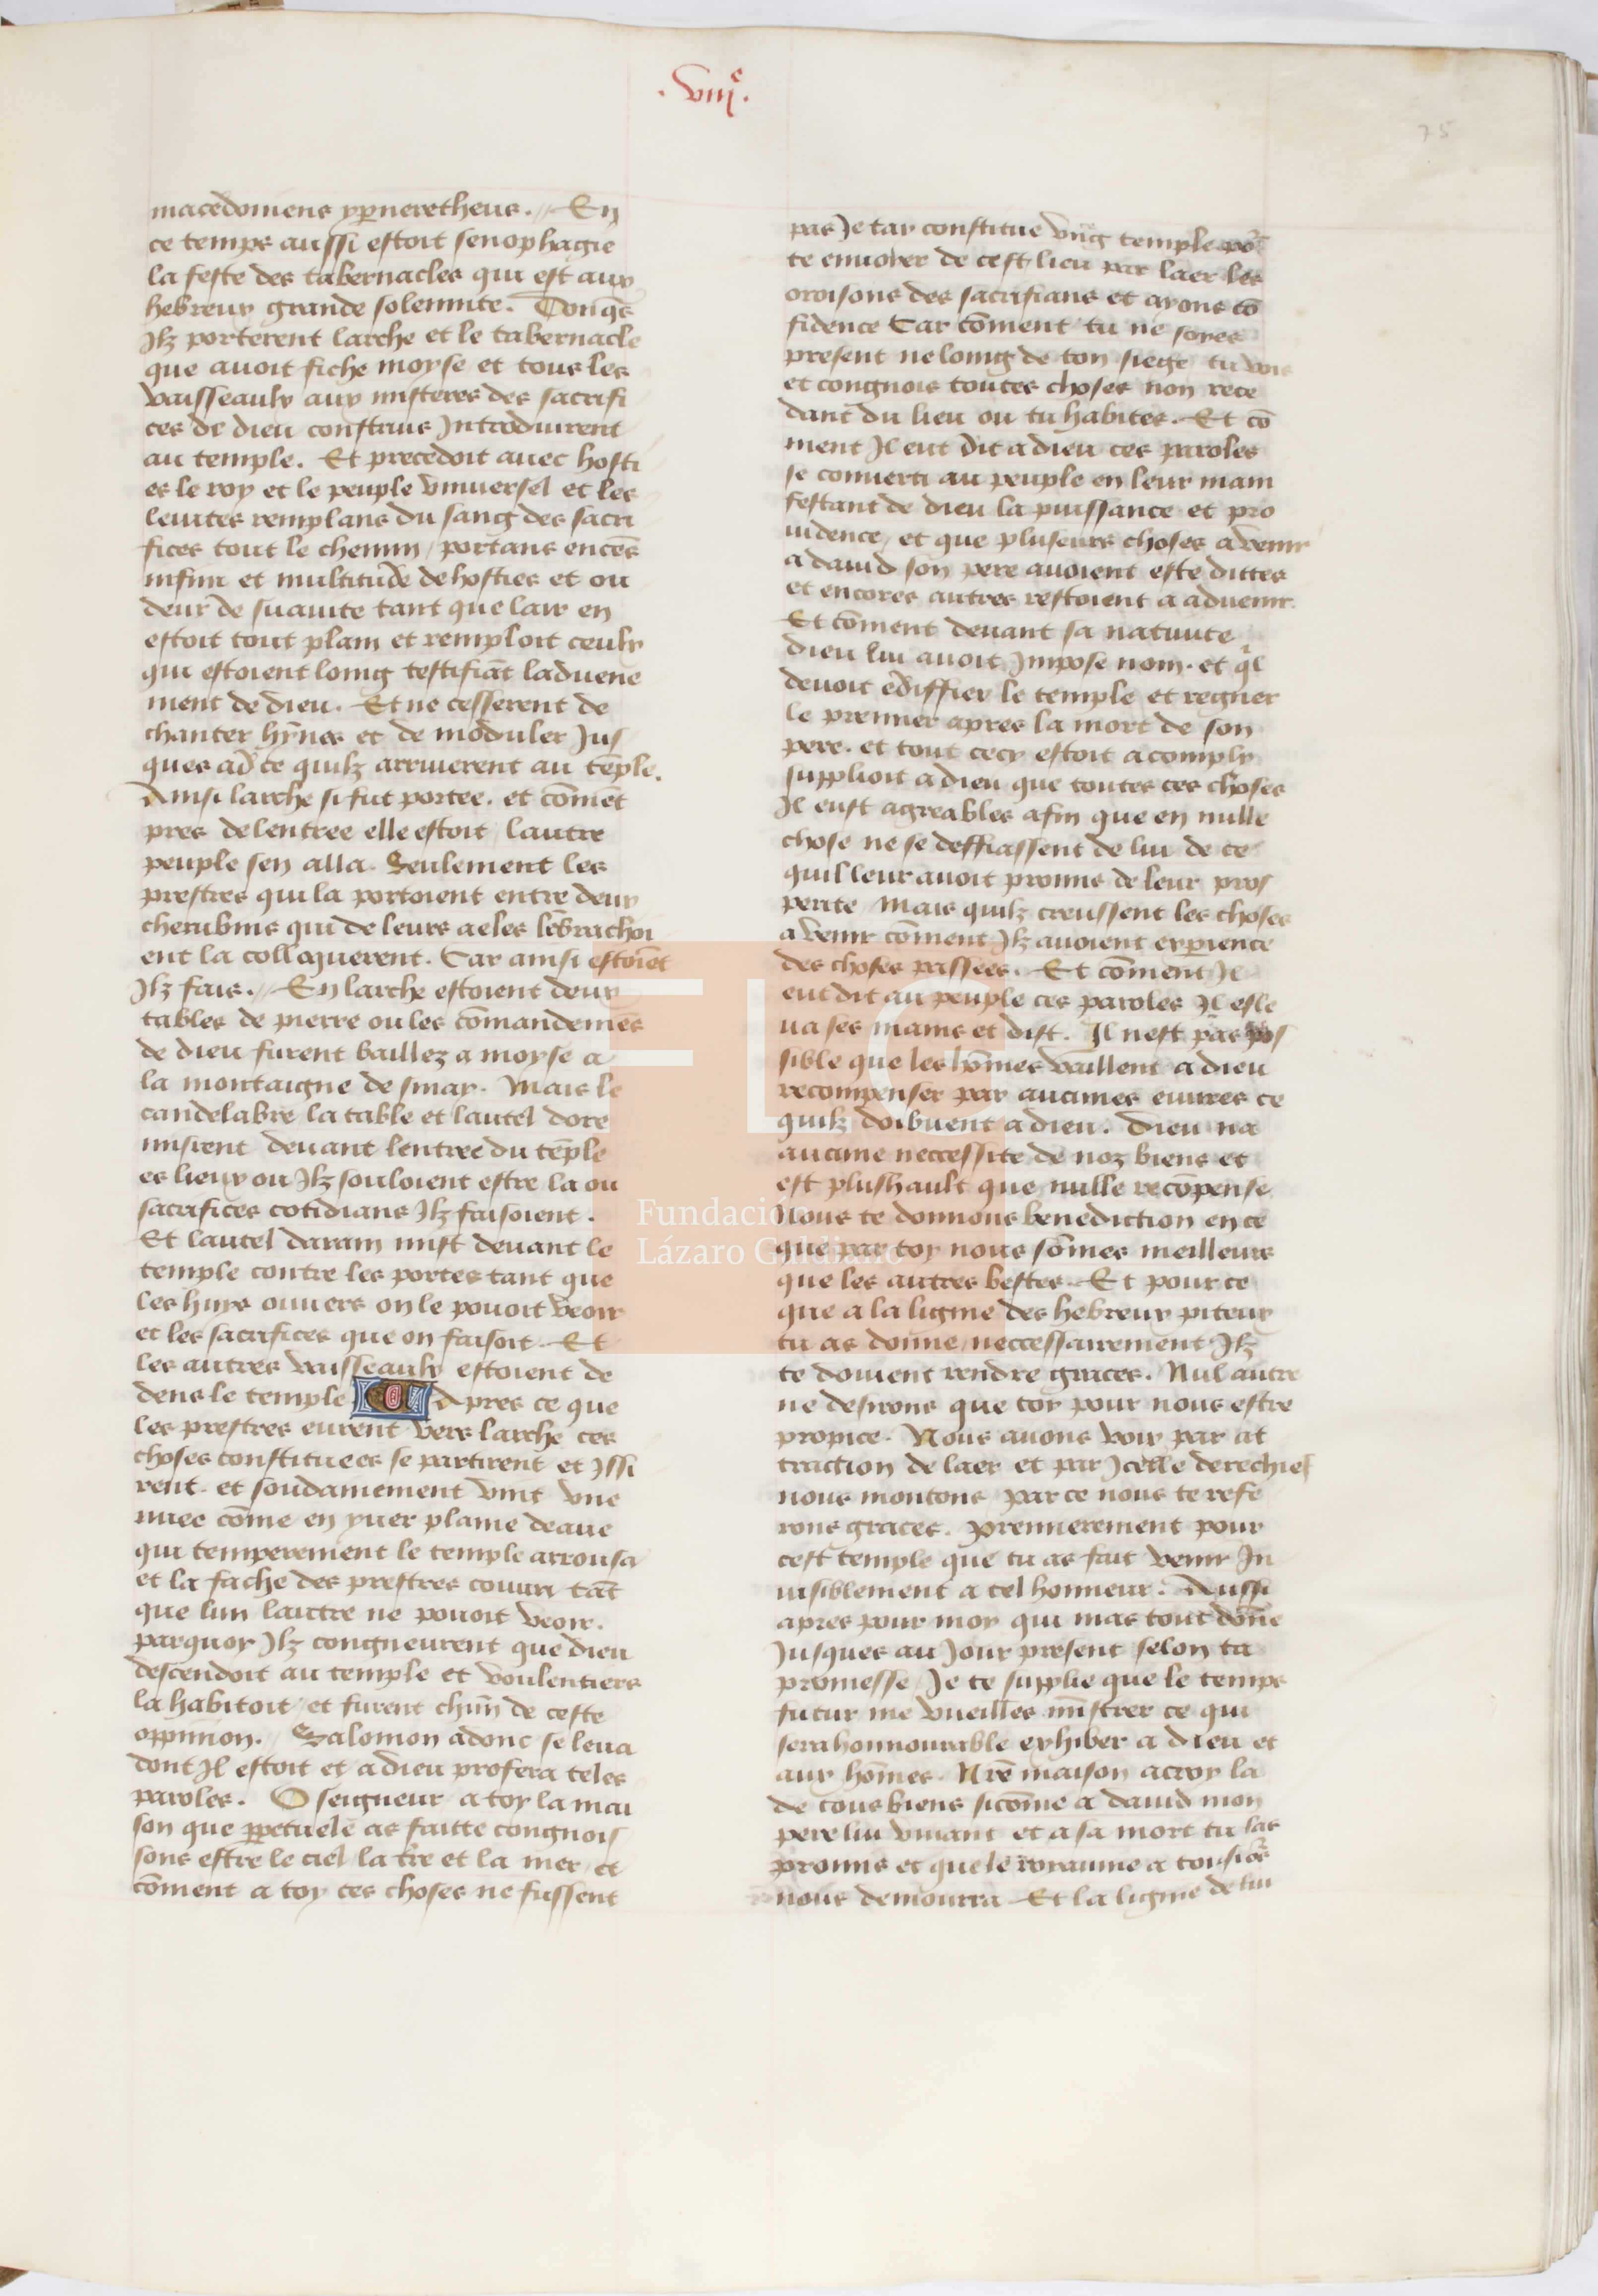 .viijᵉ.
75
macedomens ypneretheus. En
ce temps aussi estoit senophagie
la feste des tabernacles qui est aux
hebreux grande solemnite. Donqs
Ilz porterent larche et le tabernacle
que auoit fiche moyse et tous les
vaisseaulx aux misteres des sacrifi
ces de dieu construis Introduirent
au temple. Et precedoit auec hosti
es le roy et le peuple vniuersel et les
leuites remplans du sang des sacri
fices tout le chemin, portans encēs
infini et multitude de hosties et ou
deur de suauite tant que lair en
estoit tout plain et remploit ceulx
qui estoient loing testifiāt laduene
ment de dieu. Et ne cesserent de
chanter hȳnes et de moduler Jus
ques ad ce quilz arriuerent au tēple.
Ainsi larche si fut portee. et cōmēt
pres de lentree elle estoit lautre
peuple sen alla. Seulement les
prestres qui la portoient entre deux
cherubins qui de leurs aeles lēbrachoi
ent la colloquerent. Car ainsi estoiēt
Ilz fais. En larche estoient deux
tables de pierre ou les cōmandemēs
de dieu furent baillez a moyse a
la montaigne de sinay. Mais le
candelabre la table et lautel dore
misrent deuant lentree du tēple
es lieux ou Ilz souloient estre la ou
sacrifices cotidians Ilz faisoient.
Et lautel darain mist deuant le
temple contre les portes tant que
les huys ouuers on le pouoit veoir
et les sacrifices que on faisoit. Et
les autres vaisseaulx estoient de
dens le temple Apres ce que
les prestres eurent vers larche ces
choses constituees se partirent et Issi
rent. et soudainement vint vne
nuee cōme en yuer plaine deaue
qui temperement le temple arrousa
et la fache des prestres couuri tāt
que lun lautre ne pouoit veoir.
parquoy Ilz congneurent que dieu
descendoit au temple et voulentiers
la habitoit et furent chūn de ceste
oppinion. Salomon adonc se leua
dont Il estoit et a dieu profera teles
paroles. O seigneur a toy la mai
son que ppetuele as faitte congnois
sons estre le ciel la tre et la mer et
cōment a toy ces choses ne fussent
pas Je tay constitue vng temple po
te enuoier de cest lieu par laer les
oroisons des sacrifians et ayons cō
fidence Car cōment tu ne soyes
present ne loing de ton siege tu vois
et congnois toutes choses non rece
dant du lieu ou tu habites. Et cō
ment Il eut dit a dieu ces paroles
se conuerti au peuple en leur mani
festant de dieu la puissance et pro
uidence, et que pluseurs choses a venir
a dauid son pere auoient este dittes
et encores autres restoient a aduenir.
Et cōment deuant sa natiuite
dieu lui auoit Impose nom. et ql
deuoit ediffier le temple et regner
le premier apres la mort de son
pere. et tout cecy estoit acomply
supplioit a dieu que toutes ces choses
Il eust agreables afin que en nulle
chose ne se deffiassent de lui de ce
quil leur auoit promis de leur pros
perite Mais quilz creussent les choses
a venir cōment Ilz auoient experience
des choses passees. Et cōment Il
eut dit au peuple ces paroles Il esle
ua ses mains et dist. Il nest pas pos
sible que les hōmes vaillent a dieu
recompenser par aucunes euures ce
quilz doibuent a dieu. Dieu na
aucune neccessite de noz biens et
est plus hault que nulle recōpense
Nous te donnons benediction en ce
que par toy nous sōmes meilleurs
que les autres bestes. Et pour ce
que a la lignie des hebreux piteux
tu as donne neccessairement Ilz
te doiuent rendre graces. Nul autre
ne desirons que toy pour nous estre
propice. Nous auons voix par at
traction de laer et par Icelle derechief
nous montons par ce nous te refe
rons graces. premierement pour
cest temple que tu as fait venir In
uisiblement a tel honneur. Aussi
apres pour moy qui mas tout dōne
Jusques au Jour present selon ta
promesse Je te supplie que le temps
futur me vueilles mīstrer ce qui
sera honnourable exhiber a dieu et
aux hōmes. Nrē maison accroy la
de tous biens sicōme a dauid mon
pere lui viuant et a sa mort tu las
promis et que le royaume a tousiors
nous demourra Et la lignie de lui
FLG
Fundación
Lázaro Galdiano